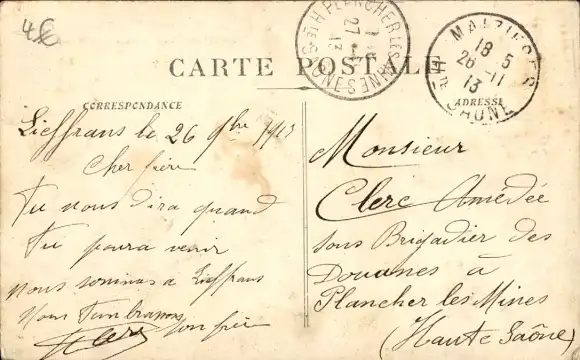 4€
CARTE POSTALE
CORRESPONDANCE
Lieffrans le 26 9bre 1913
Cher frère
Tu nous dira quand
Tu poura venir
nous sommes a Lieffrans
Nous T'embrassons
Clerc ton frère
PLANCHER LES MINES
Hte SAONE
27
13
MAIZIERES
18 5
26 -11
13
Hte SAONE
ADRESSE
Monsieur
Clerc Amédée
sous Brigadier des
Douanes à
Plancher les Mines
(Haute Saône)